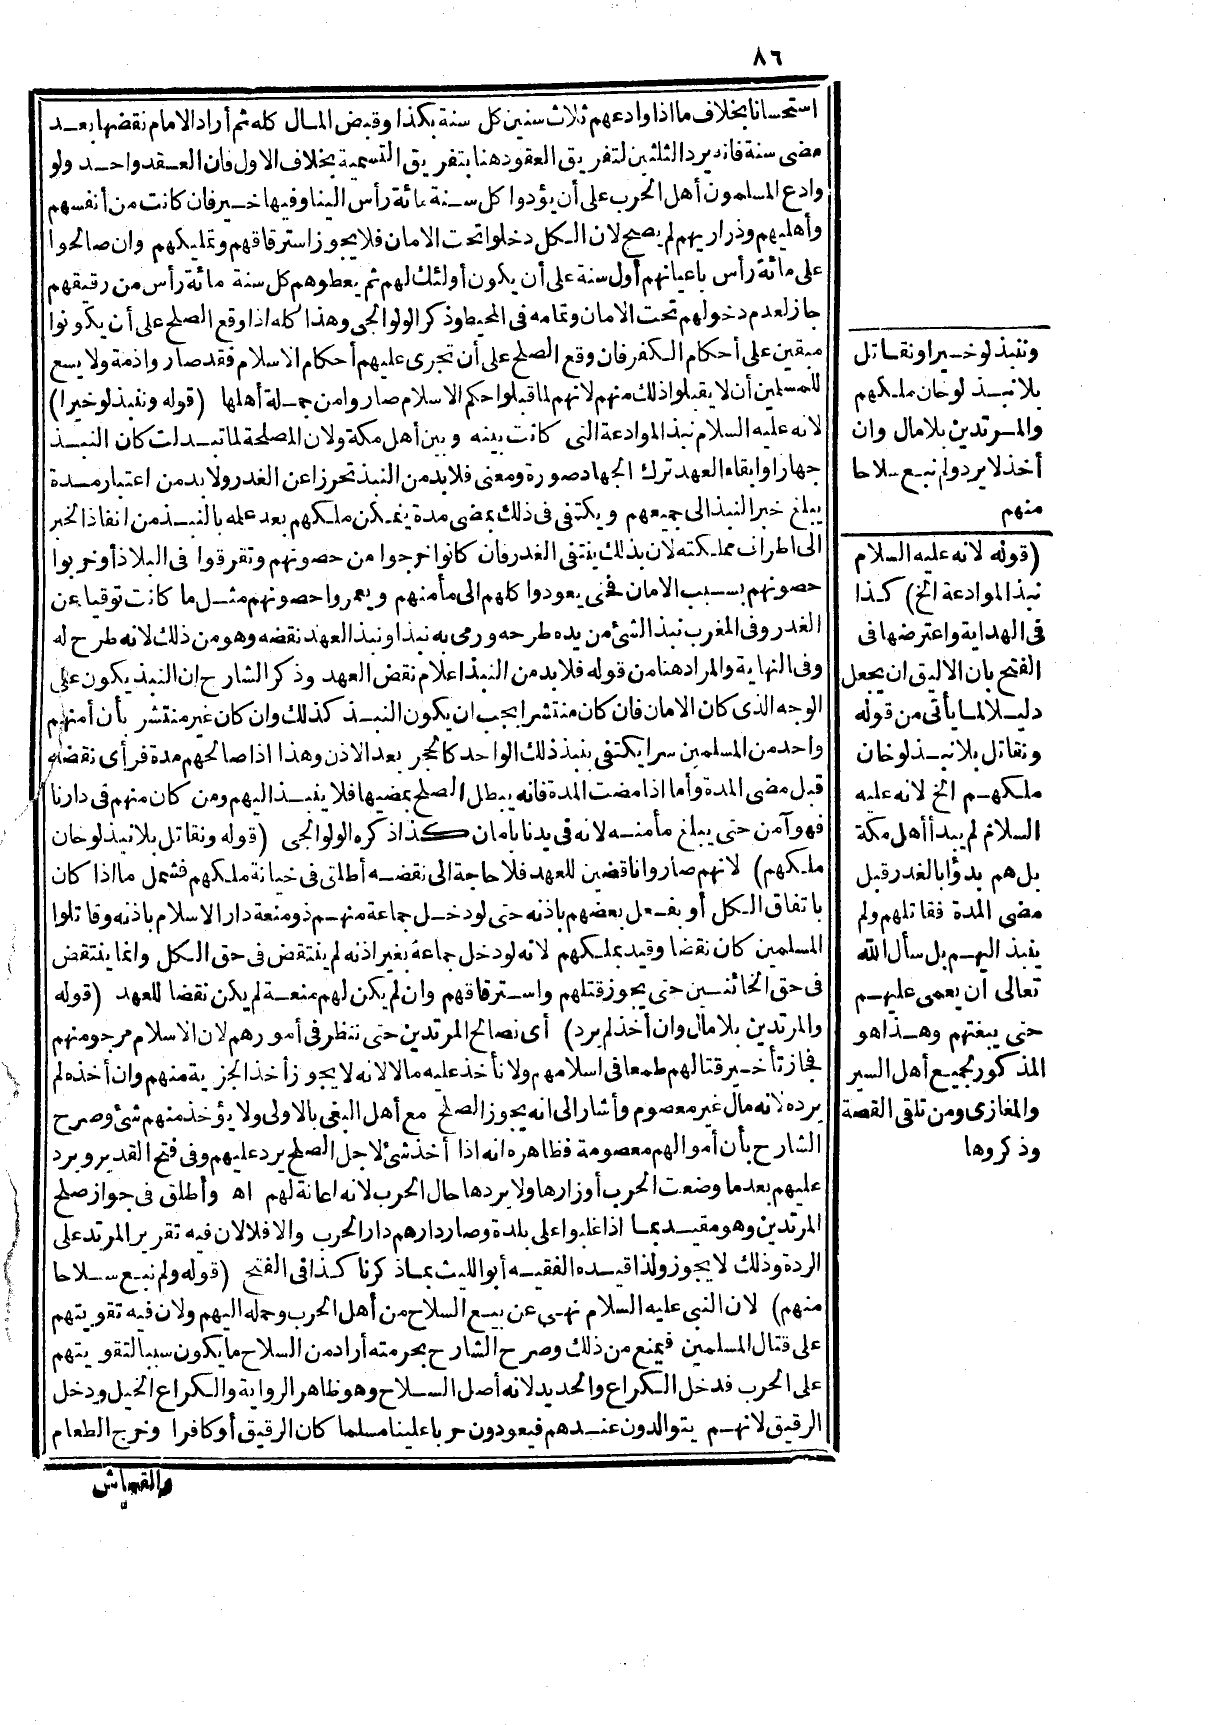 ٨٦
استحسانا بخلاف ما اذا وادعهم ثلاث سنين كل سنة بكذا وقبض المال كله ثم أراد الامام نقضها بعد
مضى سنة فانه يرد الثلثين لتفريق العقود هنا بتفريق التسمية بخلاف الاول فان العقد واحد ولو
وادع المسلمون أهل الحرب على أن يؤدوا كل سنة مائة رأس الينا وفيها خير فان كانت من أنفسهم
وأهليهم وذراريهم لم يصح لان الكل دخلوا تحت الامان فلا يجوز استرقاقهم وتمليكهم وان صالحوا
على مائة رأس باعيانهم أول سنة على أن يكون أولئك لهم ثم يعطوهم كل سنة مائة رأس من رقيقهم
جاز لعدم دخولهم تحت الامان وتمامه فى المحيط وذكر الولوالجى وهذا كله اذا وقع الصلح على أن يكونوا
مبقين على أحكام الكفر فان وقع الصلح على أن تجرى عليهم أحكام الاسلام فقد صاروا ذمة ولا يسع
للمسلمين أن لا يقبلوا ذلك منهم لانهم لما قبلوا حكم الاسلام صاروا من جملة أهلها (قوله وننبذ لو خيرا)
لانه عليه السلام نبذ الموادعة التى كانت بينه وبين أهل مكة ولان المصلحة لما تبدلت كان النبذ
جهادا وابقاء العهد ترك الجهاد صورة ومعنى فلا بد من النبذ تحرزا عن الغدر ولا بد من اعتبار مدة
يبلغ خبر النبذ الى جميعهم ويكتفى فى ذلك بمضى مدة يتمكن ملكهم بعد علمه بالنبذ من انفاذ الخبر
الى اطراف مملكته لان بذلك ينتفى الغدر فان كانوا خرجوا من حصونهم وتفرقوا فى البلاد أو خربوا
حصونهم بسبب الامان فحتى يعودوا كلهم الى مأمنهم ويعمروا حصونهم مثل ما كانت توقيا عن
الغدر وفى المغرب نبذ الشئ من يده طرحه ورمى به نبذا ونبذ العهد نقضه وهو من ذلك لانه طرح له
وفى النهاية والمراد هنا من قوله فلا بد من النبذ اعلام نقض العهد وذكر الشارح ان النبذ يكون على
الوجه الذى كان الامان فان كان منتشرا يجب ان يكون النبذ كذلك وان كان غير منتشر بأن أمنهم
واحد من المسلمين سرا يكتفى بنبذ ذلك الواحد كالحجر بعد الاذن وهذا اذا صالحهم مدة فرأى نقضه
قبل مضى المدة وأما اذا مضت المدة فانه يبطل الصلح بمضيها فلا ينبذ اليهم ومن كان منهم فى دارنا
فهو آمن حتى يبلغ مأمنه لانه فى يدنا بأمان كذا ذكره الولوالجى (قوله ونقاتل بلا نبذ لو خان
ملكهم) لانهم صاروا ناقضين للعهد فلا حاجة الى نقضه أطلق فى خيانة ملكهم فشمل ما اذا كان
باتفاق الكل أو بفعل بعضهم باذنه حتى لو دخل جماعة منهم ذو منعة دار الاسلام باذنه وقاتلوا
المسلمين كان نقضا وقيد بملكهم لانه لو دخل جماعة بغير اذنه لم ينتقض فى حق الكل وانما ينتقض
فى حق الخائنين حتى يجوز قتلهم واسترقاقهم وان لم يكن لهم منعة لم يكن نقضا للعهد (قوله
والمرتدين بلا مال وان أخذ لم يرد) أى نصالح المرتدين حتى ننظر فى أمورهم لان الاسلام مرجو منهم
فجاز تأخير قتالهم طمعا فى اسلامهم ولا نأخذ عليه مالا لانه لا يجوز أخذ الجزية منهم وان أخذه لم
يرده لانه مال غير معصوم وأشار الى انه يجوز الصلح مع أهل البغى بالاولى ولا يؤخذ منهم شئ وصرح
الشارح بأن أموالهم معصومة فظاهره انه اذا أخذ شئ لاجل الصلح يرد عليهم وفى فتح القدير ويرد
عليهم بعد ما وضعت الحرب أوزارها ولا يردها حال الحرب لانه اعانة لهم اه وأطلق فى جواز صلح
المرتدين وهو مقيد بما اذا غلبوا على بلدة وصار دارهم دار الحرب والا فلا لان فيه تقرير المرتد على
الردة وذلك لا يجوز ولذا قيده الفقيه أبو الليث بما ذكرنا كذا فى الفتح (قوله ولم نبع سلاحا
منهم) لان النبى عليه السلام نهى عن بيع السلاح من أهل الحرب وحمله اليهم ولان فيه تقويتهم
على قتال المسلمين فيمنع من ذلك وصرح الشارح بحرمته أراد من السلاح ما يكون سببا لتقويتهم
على الحرب فدخل الكراع والحديد لانه أصل السلاح وهو ظاهر الرواية والكراع الخيل ودخل
الرقيق لانهم يتوالدون عندهم فيعودون حربا علينا مسلما كان الرقيق أو كافرا وخرج الطعام
والقماش
وننبذ لو خيرا ونقاتل
بلا نبذ لو خان ملكهم
والمرتدين بلا مال وان
أخذ لا يرد ولم نبع سلاحا
منهم
(قوله لانه عليه السلام
نبذ الموادعة الخ) كذا
فى الهداية واعترضها فى
الفتح بان الاليق ان يجعل
دليلا لما يأتى من قوله
ونقاتل بلا نبذ لو خان
ملكهم الخ لانه عليه
السلام لم يبدأ أهل مكة
بل هم بدؤا بالغدر قبل
مضى المدة فقاتلهم ولم
ينبذ اليهم بل سأل الله
تعالى ان يعمى عليهم
حتى يبغتهم وهذا هو
المذكور لجميع أهل السير
والمغازى ومن تلقى القصة
وذكروها